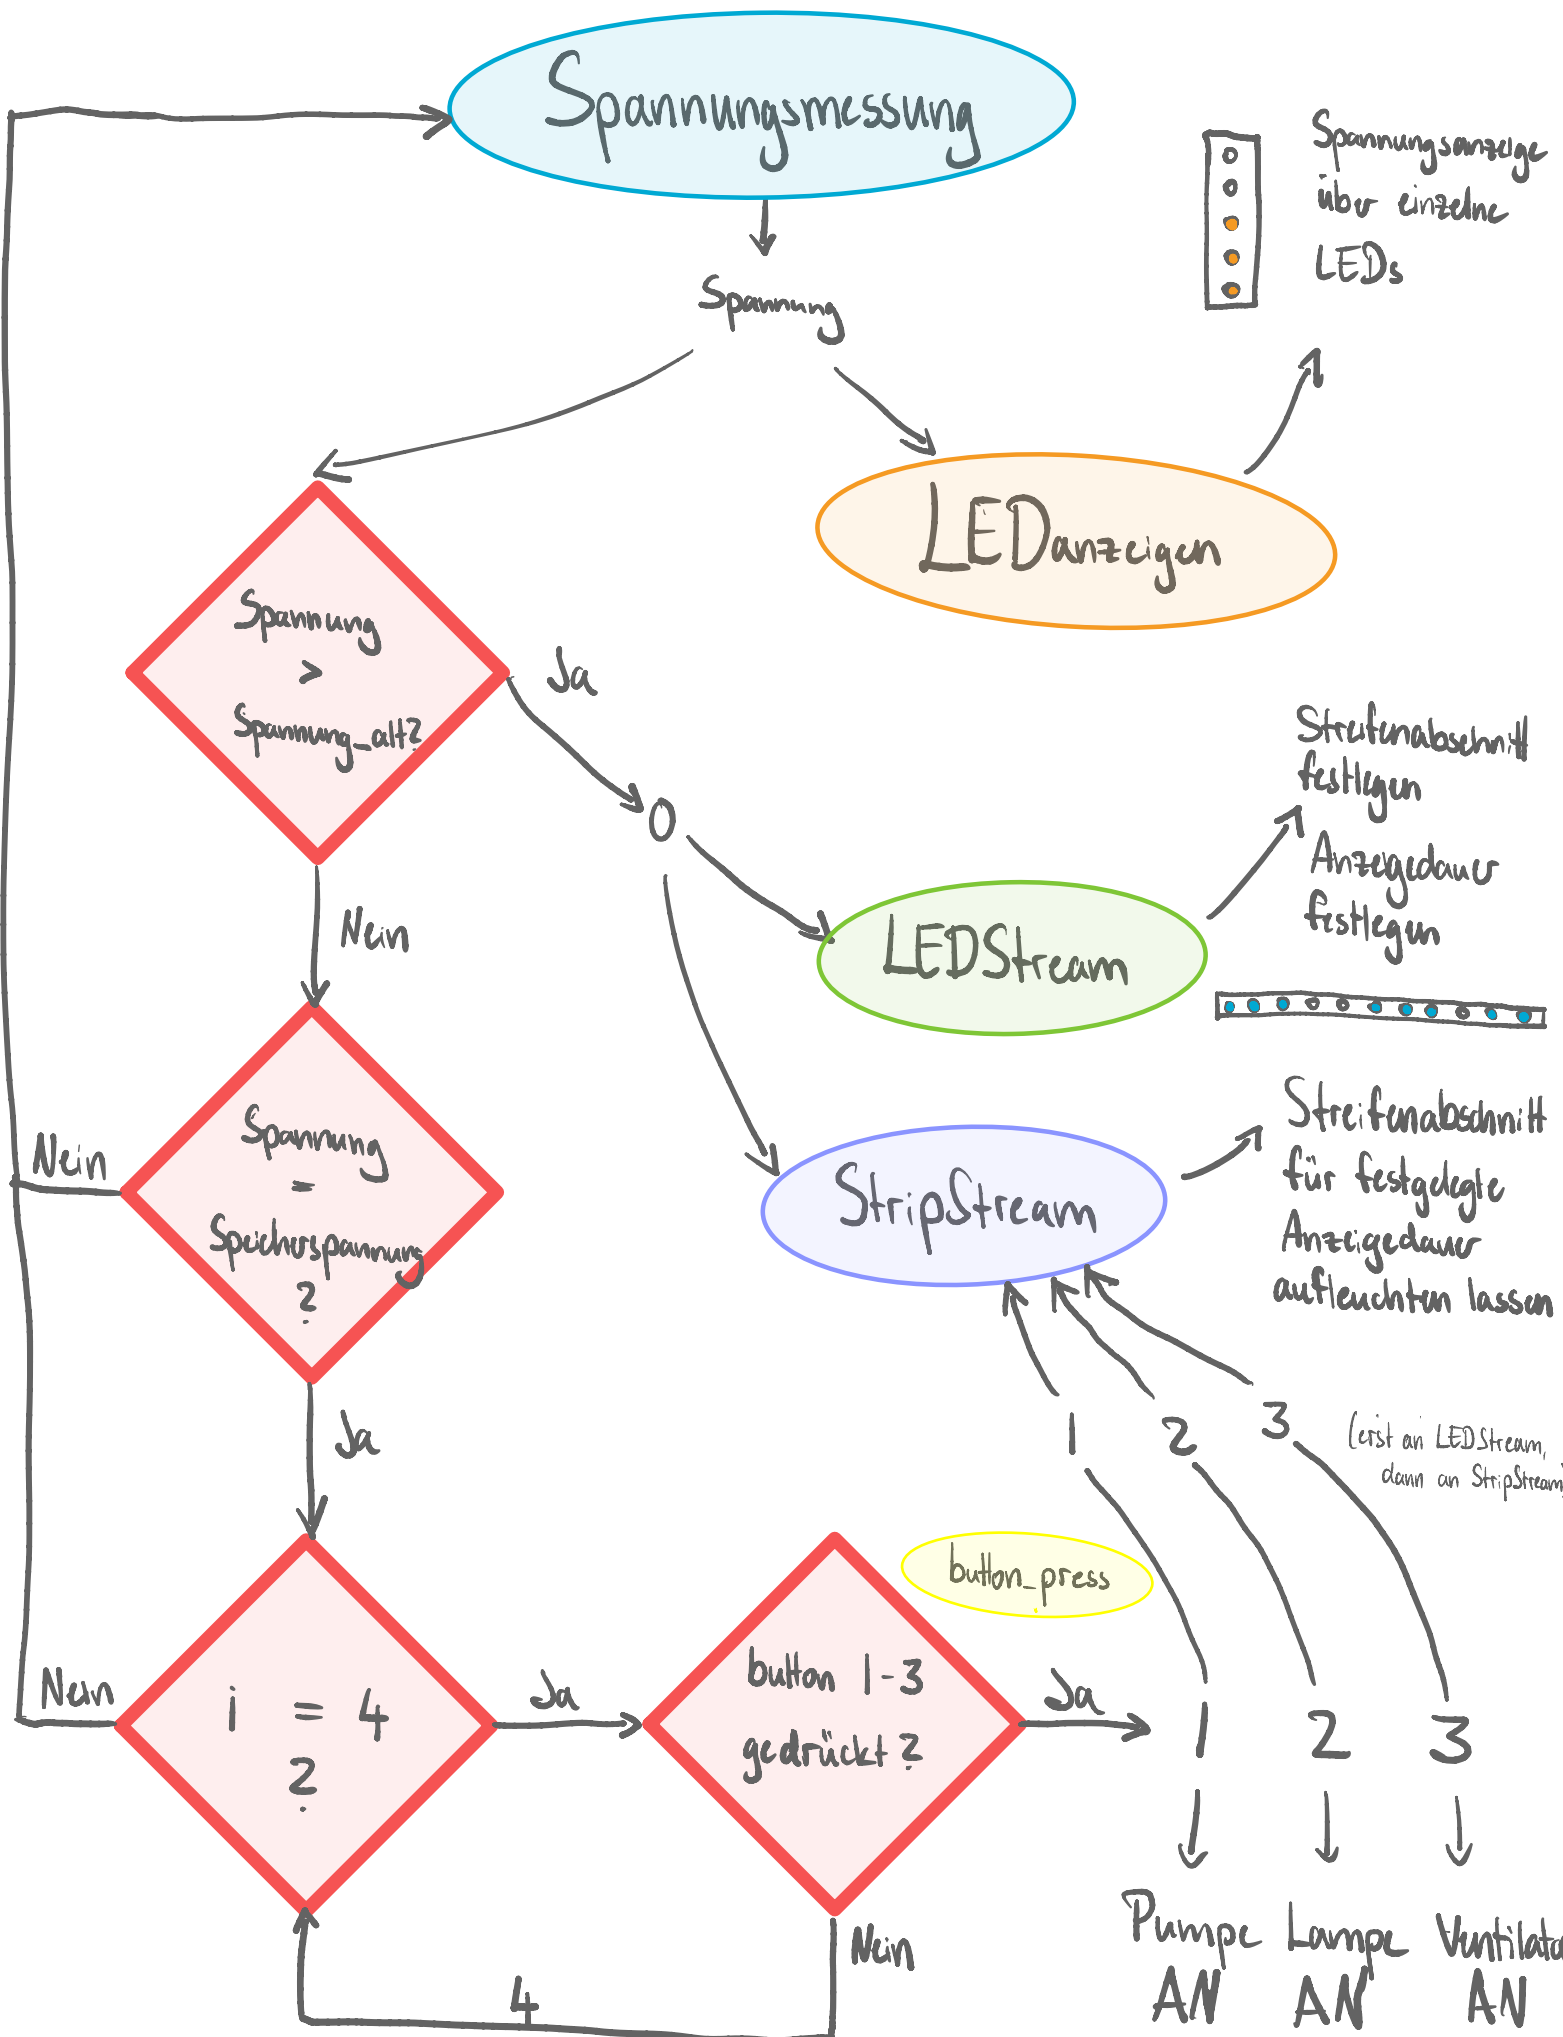 Spannungsmessung
Spannungsanzeige
über einzelne
LEDs
Spannung
LEDanzeigen
Spannung
>
Spannung_alt?
Ja
0
Streifenabschnitt
festlegen
Anzeigedauer
festlegen
Nein
LEDStream
Spannung
=
Speicherspannung
?
Nein
StripStream
Streifenabschnitt
für festgelegte
Anzeigedauer
aufleuchten lassen
Ja
1 2 3
(erst an LEDStream,
dann an StripStream)
button_press
Nein
i = 4
?
Ja
button 1-3
gedrückt?
Ja
1 2 3
Nein
4
Pumpe
AN
Lampe
AN
Ventilato
AN